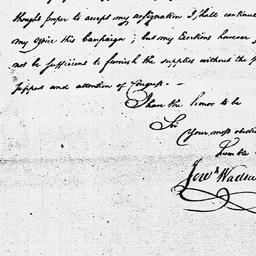 thought proper to accept my resignation I shall continue
my Office this Campaign; but my Exertions however
not be sufficient to furnish the supplies without the
support and attention of Congress. —
I have the honor to be
Sir
Your most obedi
Humble
Jerẽ Wadsw